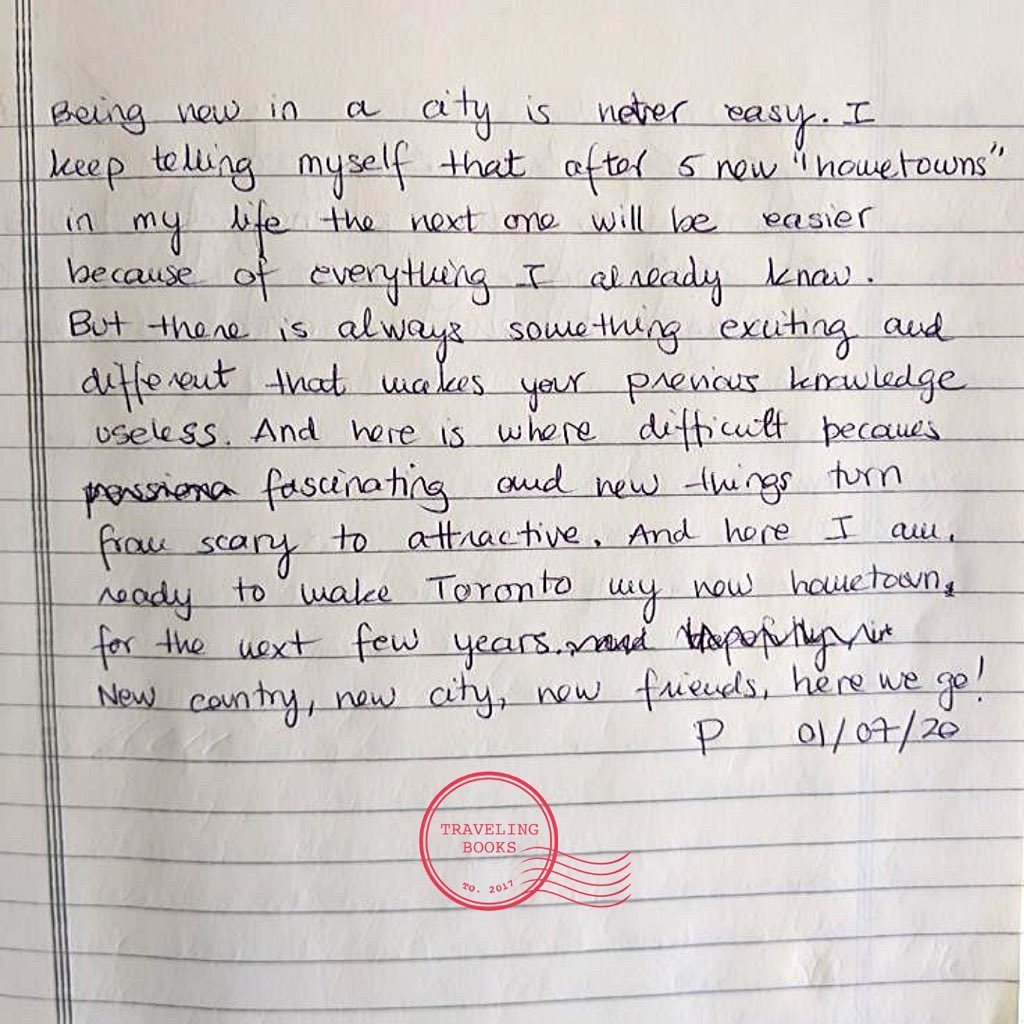 Being new in a city is never easy. I
keep telling myself that after 5 new "hometowns"
in my life the next one will be easier
because of everything I already know.
But there is always something exciting and
different that makes your previous knowledge
useless. And here is where difficult becomes
fascinating and new things turn
from scary to attractive. And here I am,
ready to make Toronto my new hometown
for the next few years.
New country, new city, new friends, here we go!
P 01/07/20
TRAVELING
BOOKS
TO. 2017